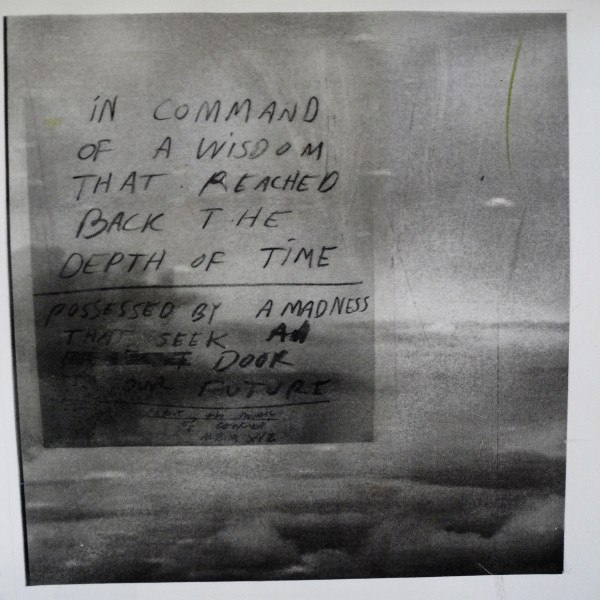 iN COMMAND
OF A WiSDOM
THAT REACHED
BACK THE
DEPTH OF TiME
POSSESSED BY A MADNESS
THAT SEEK
DOOR
OUR FUTURE
OF